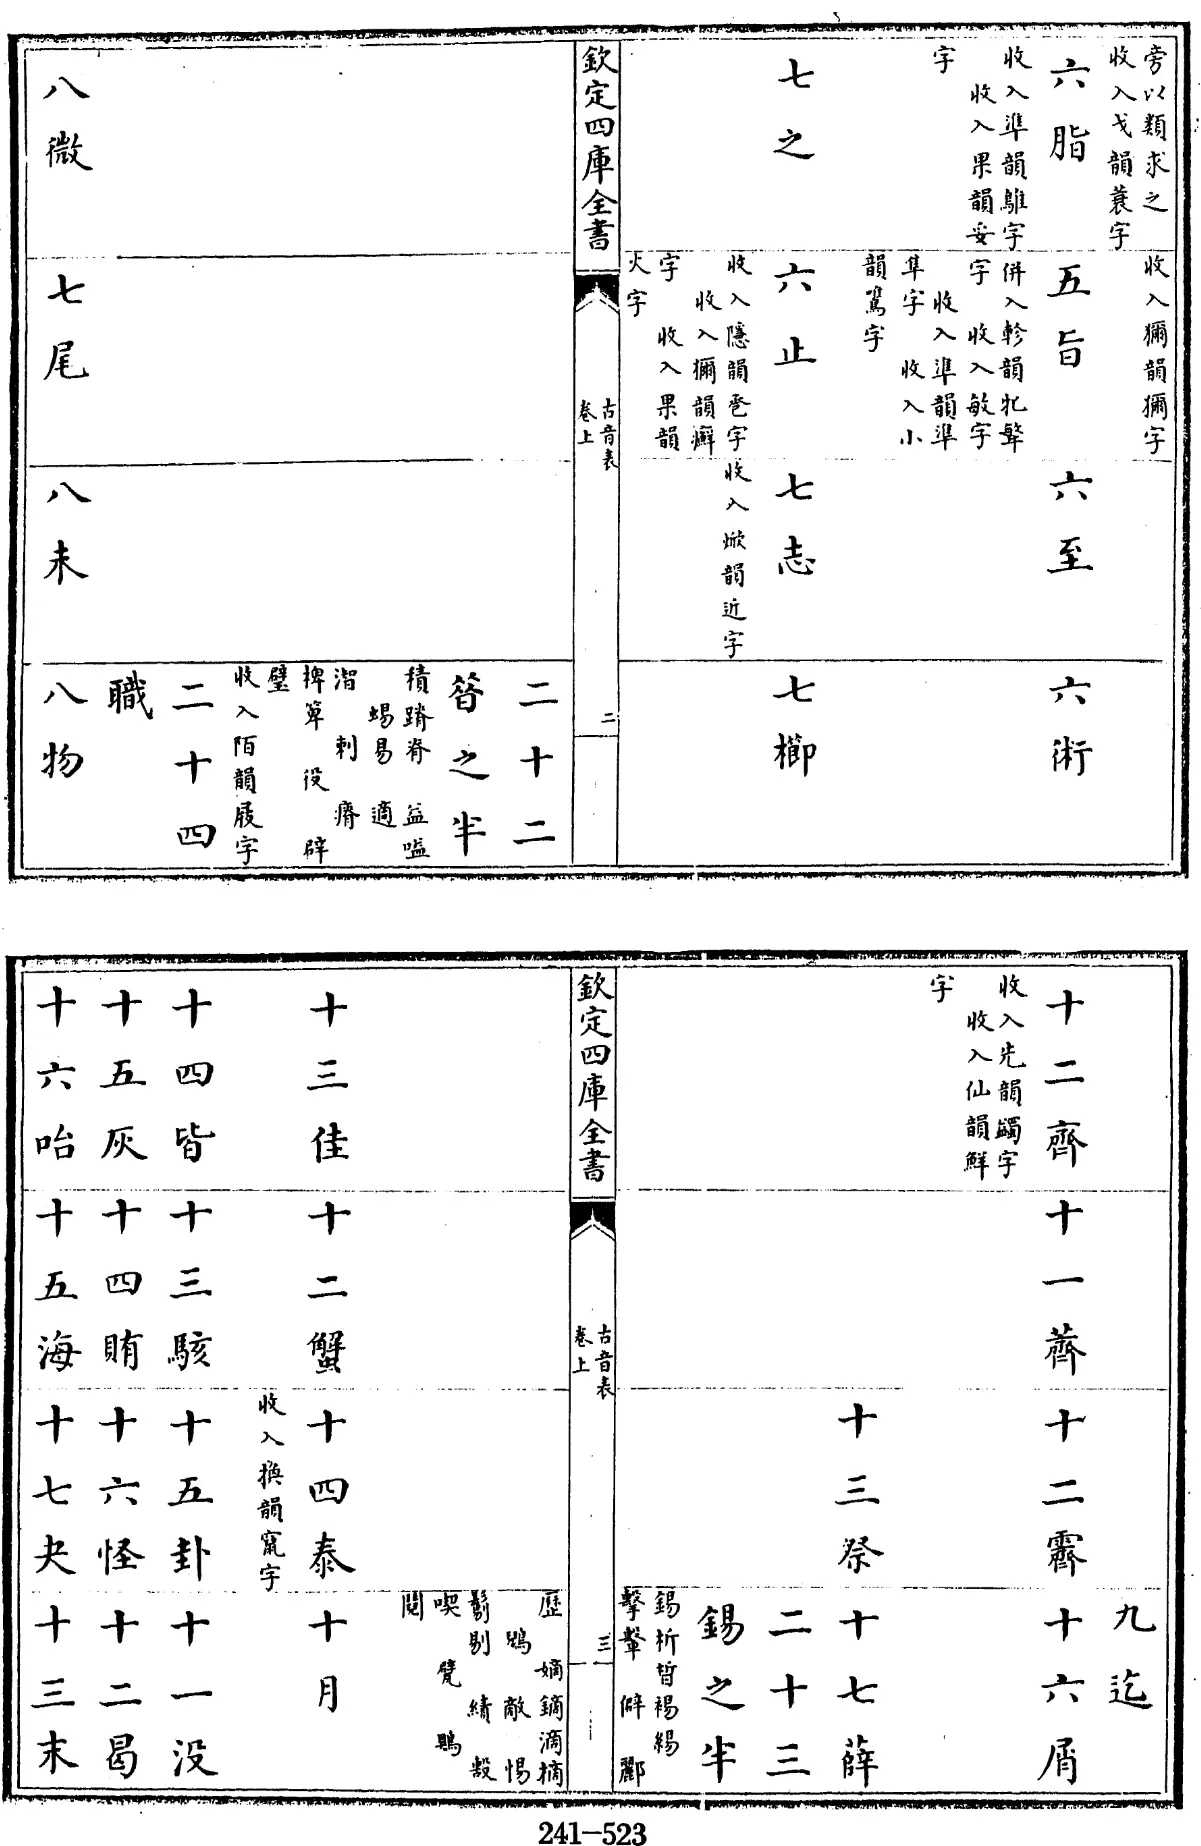 旁以類求之
收入戈韻蓑字
六脂
收入準韻鵻字
收入果韻妥
字
七之
收入獮韻獮字
五旨
併入軫韻牝
字 收入敏字
收入準韻準
隼字 收入小
韻鷕字
六止
收入隱韻巹字
收入獮韻癬
字 收入果韻
火字
六至
七志
收入焮韻近字
六術
七櫛
欽定四庫全書
古音表
卷上
二
八微
七尾
八未
二十二
昔之半
積蹐脊 益嗌
蜴易 適
刺 瘠
捭箄 役 辟
璧
收入陌韻屐字
二十四
職
八物
十二齊
收入先韻蠲字
收入仙韻鮮
字
十一薺
十二霽
十三祭
九迄
十六屑
十七薛
二十三
錫之半
錫析晳裼緆
擊鼙 僻 酈
欽定四庫全書
古音表
卷上
三
十三佳
十四皆
十五灰
十六咍
十二蟹
十三駭
十四賄
十五海
十四泰
收入換韻竄字
十五卦
十六怪
十七夬
歷 嫡鏑滴樀
鷁 敵 惕
鬄剔 績 毄
喫 覽 鶪
鬩
十月
十一没
十二曷
十三末
241-523